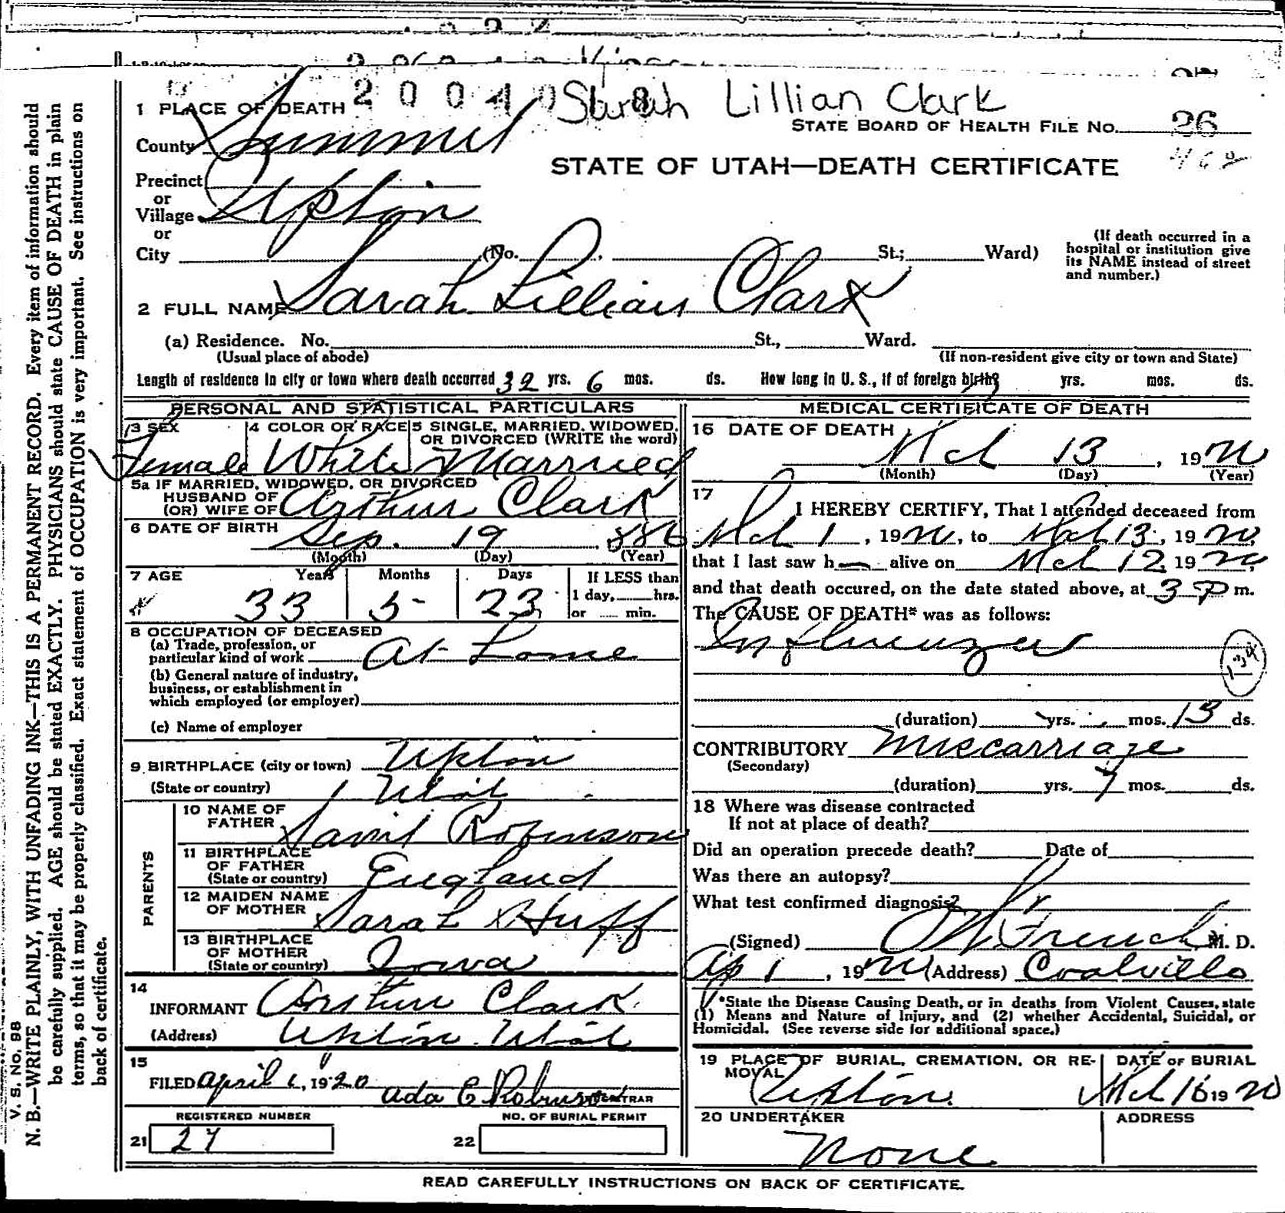 2004018 Sarah Lillian Clark
1 PLACE OF DEATH
STATE BOARD OF HEALTH FILE NO. 26
County Summit
468
STATE OF UTAH—DEATH CERTIFICATE
Precinct
or
Village Upton
or
City (No. St.; Ward)
(If death occurred in a
hospital or institution give
its NAME instead of street
and number.)
2 FULL NAME Sarah Lillian Clark
(a) Residence. No. St., Ward.
(Usual place of abode) (If non-resident give city or town and State)
Length of residence in city or town where death occurred 32 yrs. 6 mos. ds. How long in U. S., if of foreign birth? yrs. mos. ds.
PERSONAL AND STATISTICAL PARTICULARS
3 SEX 4 COLOR OR RACE 5 SINGLE, MARRIED, WIDOWED,
OR DIVORCED (WRITE the word)
Female White Married
5a IF MARRIED, WIDOWED, OR DIVORCED
HUSBAND OF
(OR) WIFE OF Arthur Clark
6 DATE OF BIRTH Sep. 19 1886
(Month) (Day) (Year)
7 AGE Years Months Days If LESS than
1 day, hrs.
or min.
33 5 23
8 OCCUPATION OF DECEASED
(a) Trade, profession, or
particular kind of work At Home
(b) General nature of industry,
business, or establishment in
which employed (or employer)
(c) Name of employer
9 BIRTHPLACE (city or town) Upton
(State or country) Utah
PARENTS
10 NAME OF
FATHER Robinson
11 BIRTHPLACE
OF FATHER
(State or country) England
12 MAIDEN NAME
OF MOTHER Sarah Huff
13 BIRTHPLACE
OF MOTHER
(State or country) Iowa
14
INFORMANT Arthur Clark
(Address) Upton Utah
15
FILED April 1, 1920 Ada E Robinson REGISTRAR
REGISTERED NUMBER NO. OF BURIAL PERMIT
21 27 22
MEDICAL CERTIFICATE OF DEATH
16 DATE OF DEATH
Mch 13, 1920
(Month) (Day) (Year)
17
I HEREBY CERTIFY, That I attended deceased from
Mch 1, 1920, to Mch 13, 1920,
that I last saw h alive on Mch 12, 1920,
and that death occured, on the date stated above, at 3 P m.
The CAUSE OF DEATH* was as follows:
Influenza
134
(duration) yrs. mos. 13 ds.
CONTRIBUTORY Miscarriage
(Secondary)
(duration) yrs. 7 mos. ds.
18 Where was disease contracted
If not at place of death?
Did an operation precede death? Date of
Was there an autopsy?
What test confirmed diagnosis?
(Signed) French M. D.
Ap 1, 1920 (Address) Coalville
*State the Disease Causing Death, or in deaths from Violent Causes, state
(1) Means and Nature of Injury, and (2) whether Accidental, Suicidal, or
Homicidal. (See reverse side for additional space.)
19 PLACE OF BURIAL, CREMATION, OR RE-
MOVAL DATE OF BURIAL
Upton Mch 16 1920
20 UNDERTAKER ADDRESS
None
READ CAREFULLY INSTRUCTIONS ON BACK OF CERTIFICATE.
V. S. No. 98
N. B.—WRITE PLAINLY, WITH UNFADING INK—THIS IS A PERMANENT RECORD. Every item of information should
be carefully supplied. AGE should be stated EXACTLY. PHYSICIANS should state CAUSE OF DEATH in plain
terms, so that it may be properly classified. Exact statement of OCCUPATION is very important. See instructions on
back of certificate.